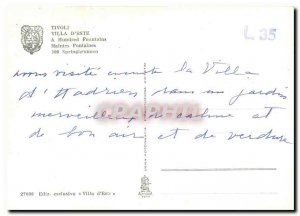 TIVOLI
VILLA D'ESTE
A Hundred Fountains
Maintes Fontaines
100 Springbrunnen
L 35
nous visité ensuite la Villa
d'Hadrien dans un jardin
merveilleux de calme et
de bon air et de verdure
27608 Ediz. esclusiva « Villa d'Este »